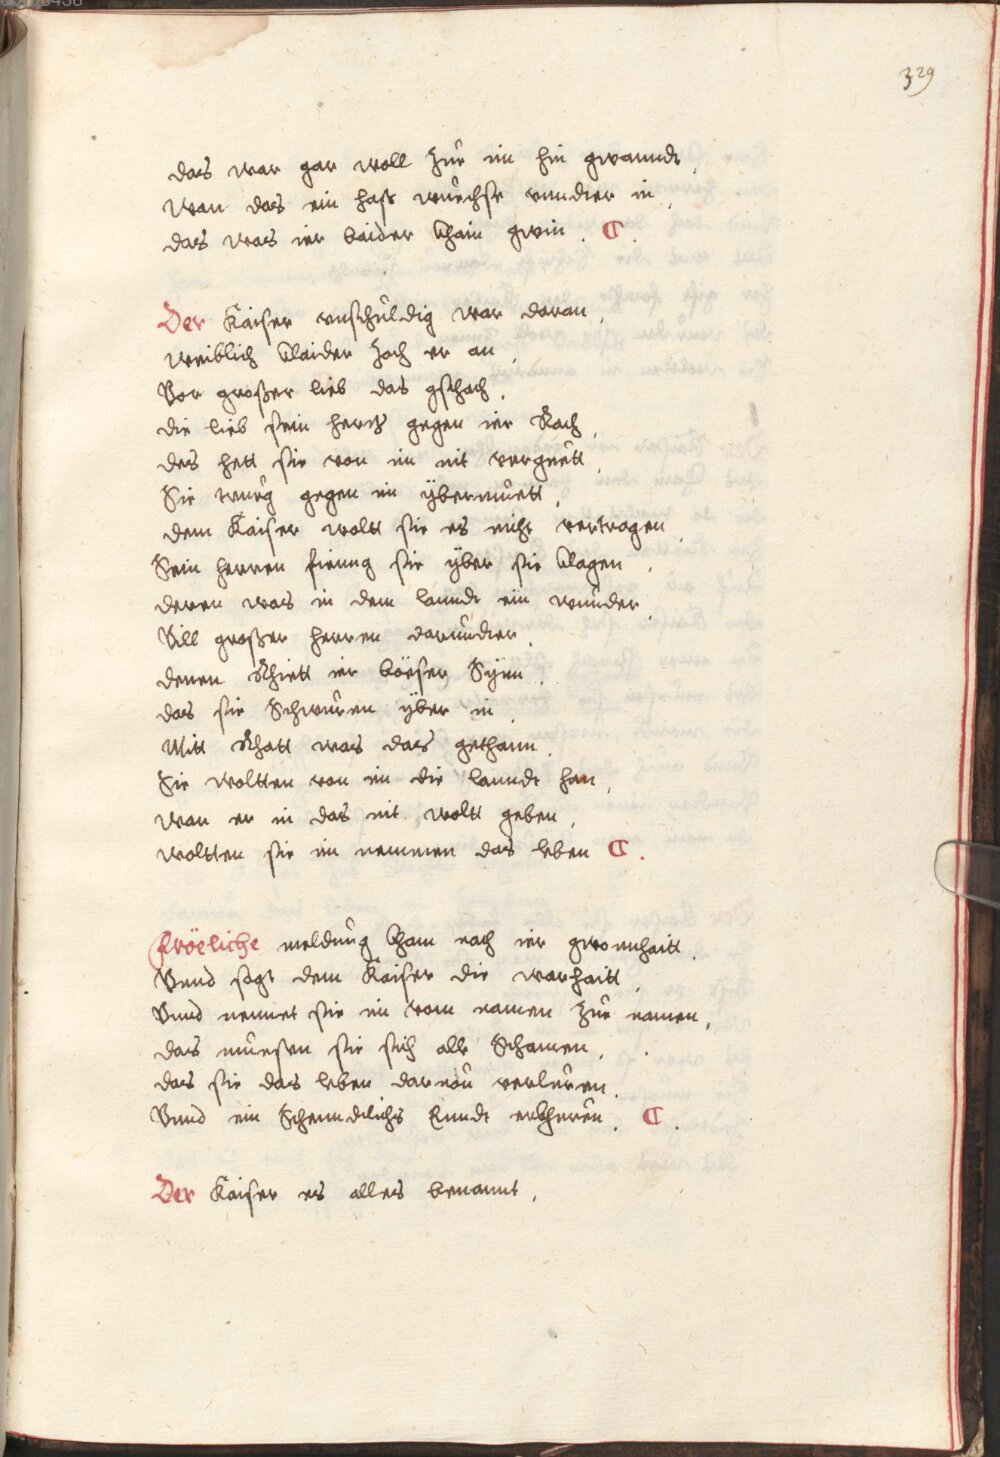 329
das war gar woll zur im hin gwanndt,
wan das ein hass wuechse vnnder in,
das was ier baider khain gwin. C.
Der Kaiser vnschuldig war daran,
weiblich klaider zoch er an,
Vor großer lieb das gschach,
die lieb sein hertz gegen ier stach,
des hett sie von im nit verguett,
Sie trueg gegen im ÿbermuett,
dem Kaiser wolt sie es nicht vertragen,
Sein herren fieng sie ÿber sie klagen,
deren was in dem lanndt ein wunder,
Vill großer herren darunder,
denen rhiett ier böeser Sÿnn,
das sie Schwuren ÿber in,
Mitt Rhatt was das gethann,
Sie woltten von im die lanndt han,
wan er in das nit woltt geben,
woltten sie im nemmen das leben C.
Fröeliche meldung kham nach ier gwonhaitt,
Vnnd sagt dem Kaiser die warhaitt,
Vnnd nennet sie im vom namen zur namen,
das muessen sie sich alle Schamen,
das sie das leben darvon verluren,
Vnnd ein Schenndtlichs Enndt erkhuren, C.
Der Kaiser es alles benannt,